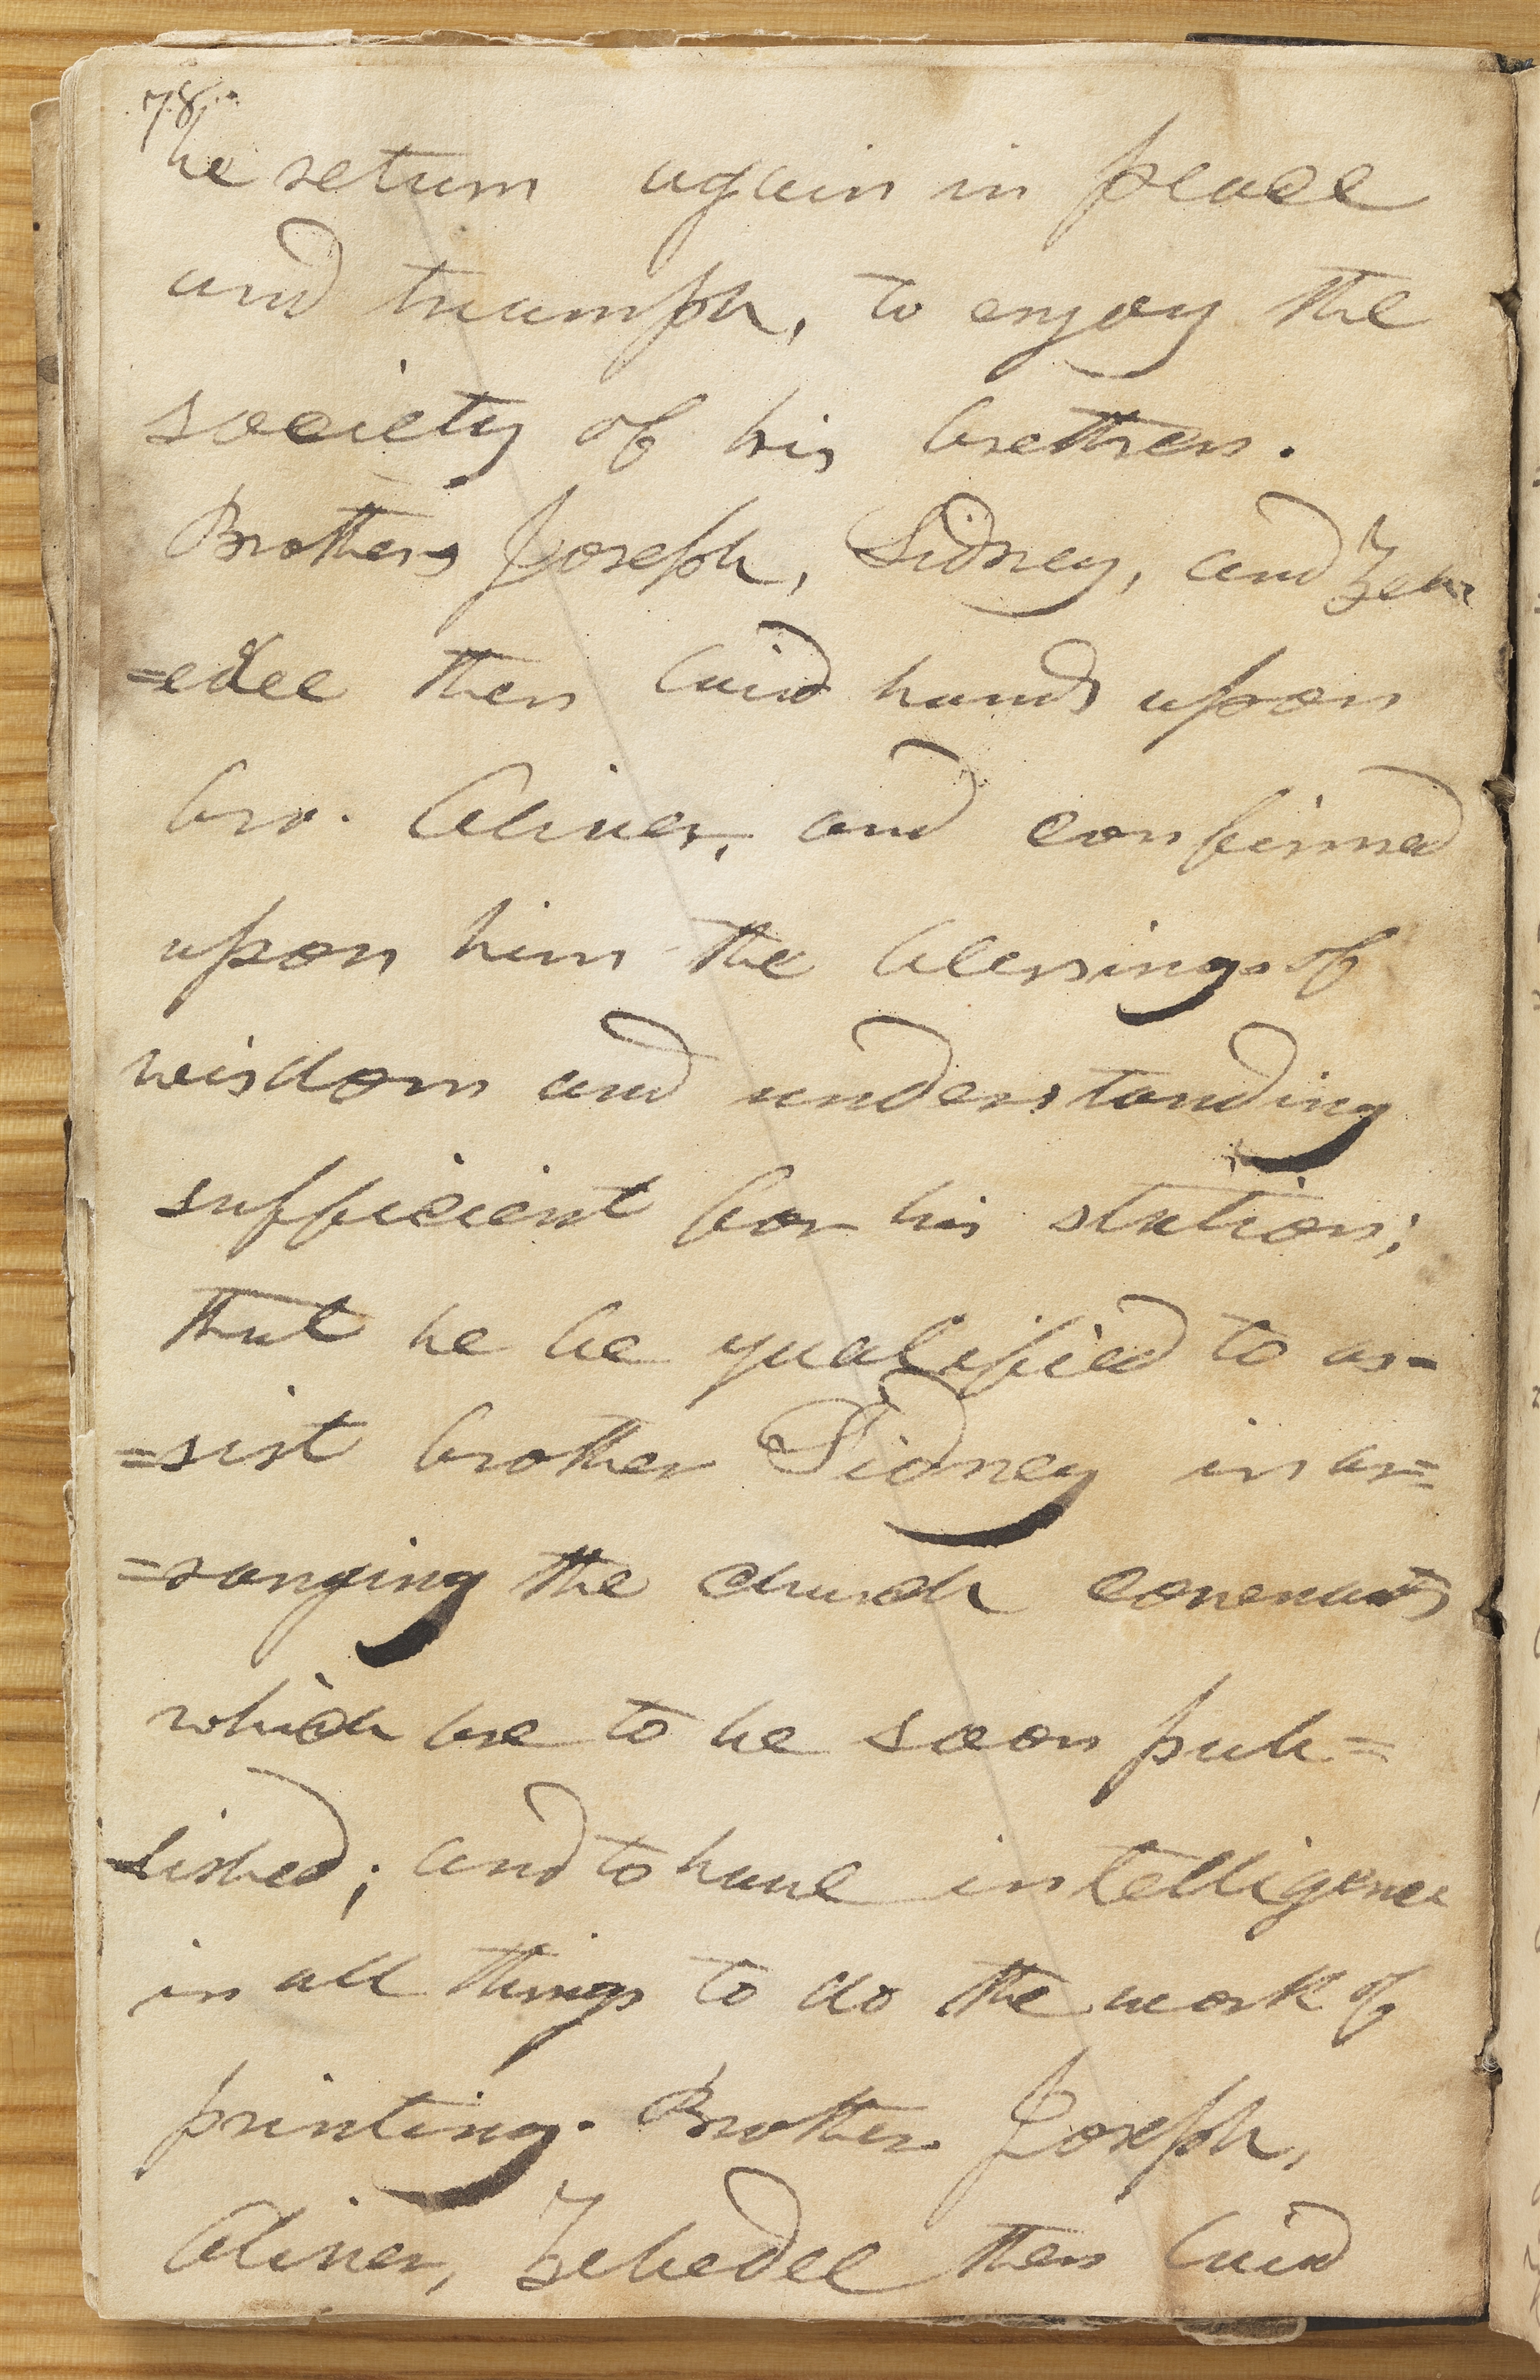 78
he return again in peace
and triumph, to enjoy the
society of his brethren.
Brothers Joseph, Sidney, and Zeb
=edee then laid hands upon
bro. Oliver, and confirmed
upon him the blessings of
wisdom and understanding
sufficient for his station;
that he be qualified to as-
=sist brother Sidney in ar=
=ranging the church covenants
which are to be soon pub=
lished; and to have intelligence
in all things to do the work of
printing. Brother Joseph,
Oliver, Zebedee then laid